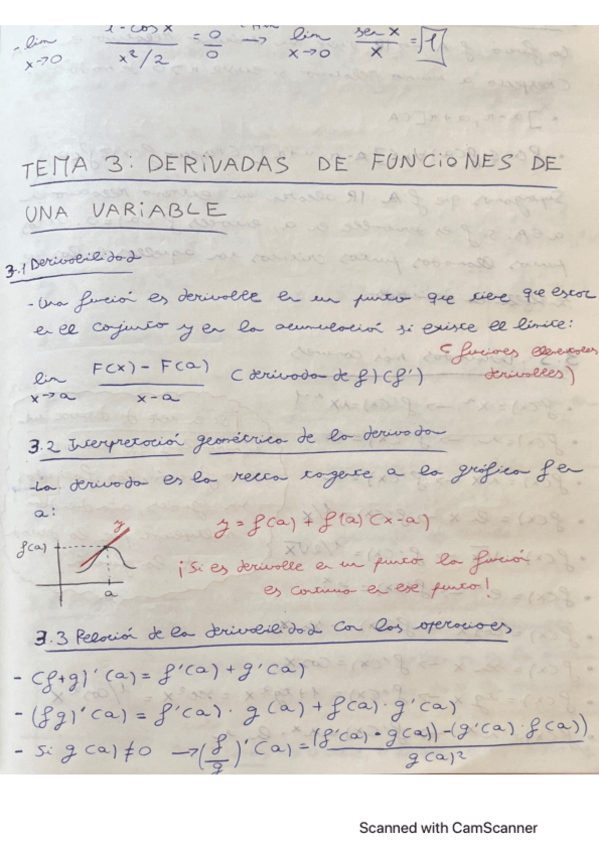 - lim 1-cos x / x²/2 = 0/0 → lim sen x / x = 1
x→0 x→0
TEMA 3: DERIVADAS DE FUNCIONES DE
UNA VARIABLE
3.1 Derivabilidad
- Una función es derivable en un punto que tiene que estar
en el conjunto y en la acumulación si existe el límite:
lim F(x) - F(a) / x-a (derivada de f) (f') (funciones elementales
x→a derivables)
3.2 Interpretación geométrica de la derivada
La derivada es la recta tagente a la gráfica f en
a:
y = f(a) + f(a) (x-a)
y
f(a)
a
¡Si es derivable en un punto la función
es continua en ese punto!
3.3 Relación de la derivabilidad con las operaciones
- (f+g)'(a) = f'(a) + g'(a)
- (fg)'(a) = f'(a) · g(a) + f(a) · g'(a)
- Si g(a) ≠ 0 → (f/g)'(a) = (f'(a) · g(a)) - (g'(a) · f(a)) / g(a)²
Scanned with CamScanner